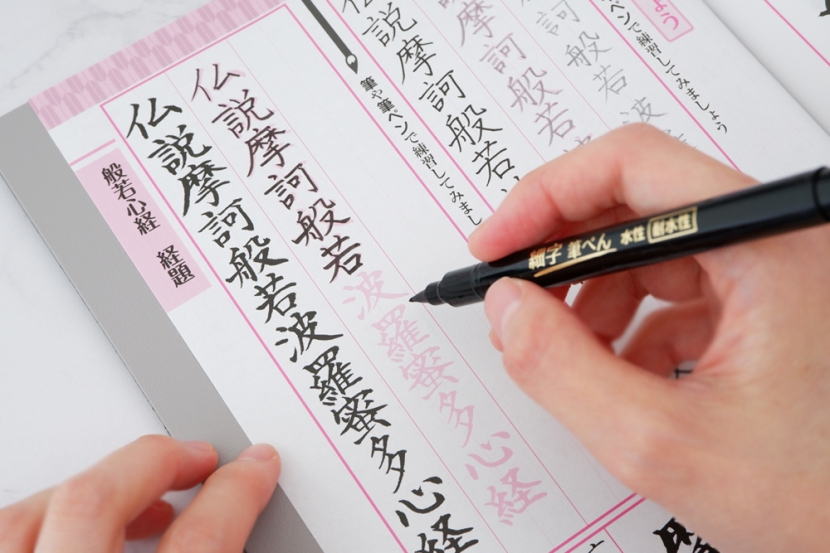 よう
ペンで練習してみましょう
訶般若波
摩訶般若
説摩訶般若
筆や筆ペンで練習してみまし
仏説摩訶般若波羅蜜多心経
仏説摩訶般若波羅蜜多心経
般若心経 経題
筆ぺん 水性 耐水性